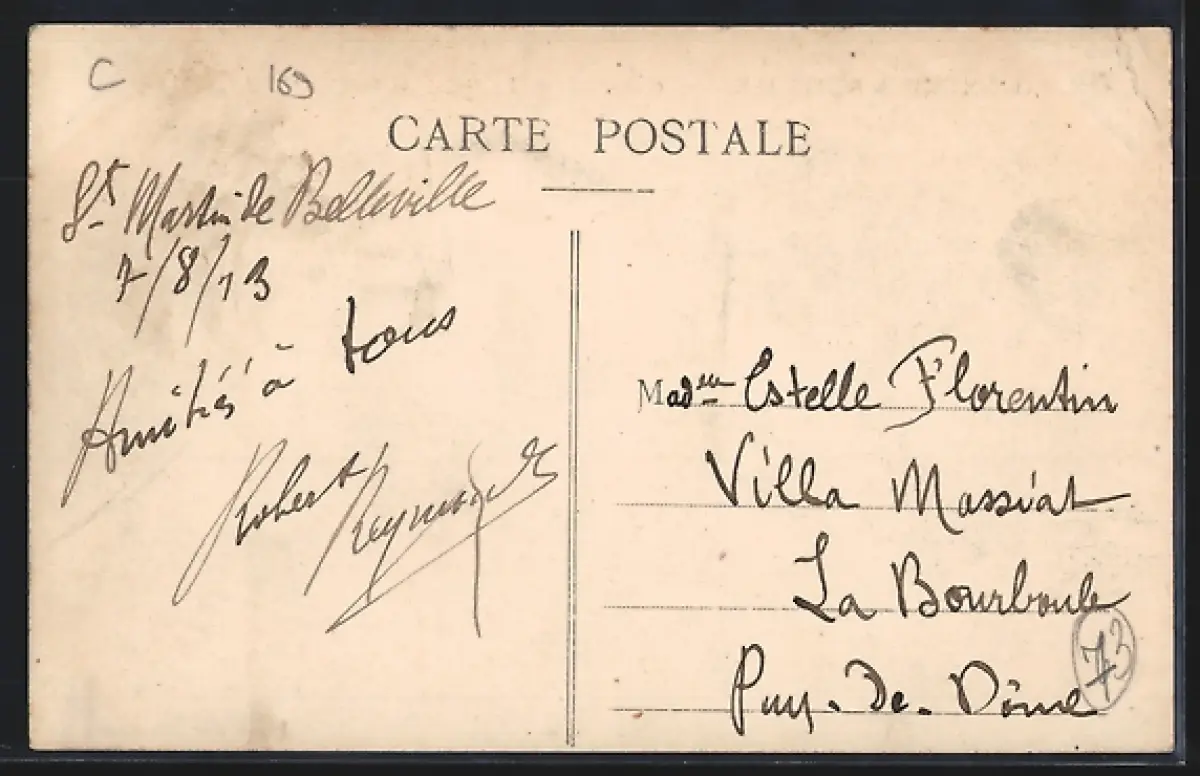 C 169
CARTE POSTALE
St Martin de Belleville
7/8/13
Amitiés à tous
Robert Reymond
Madme Estelle Florentin
Villa Massiat
La Bourboule
Puy-de-Dôme
73